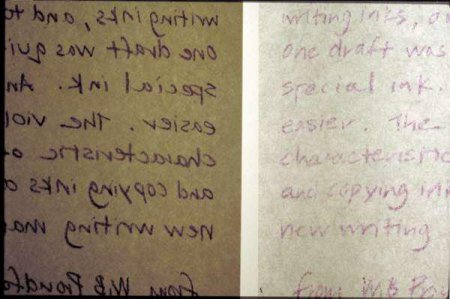 writing inks, and to
one draft was qui
special ink. An
easier. The viol
characteristic o
and copying inks
new writing
from WB Proudfo
writing inks,
one draft was
special ink.
easier. The
characteristic
and copying
new writing
from WB